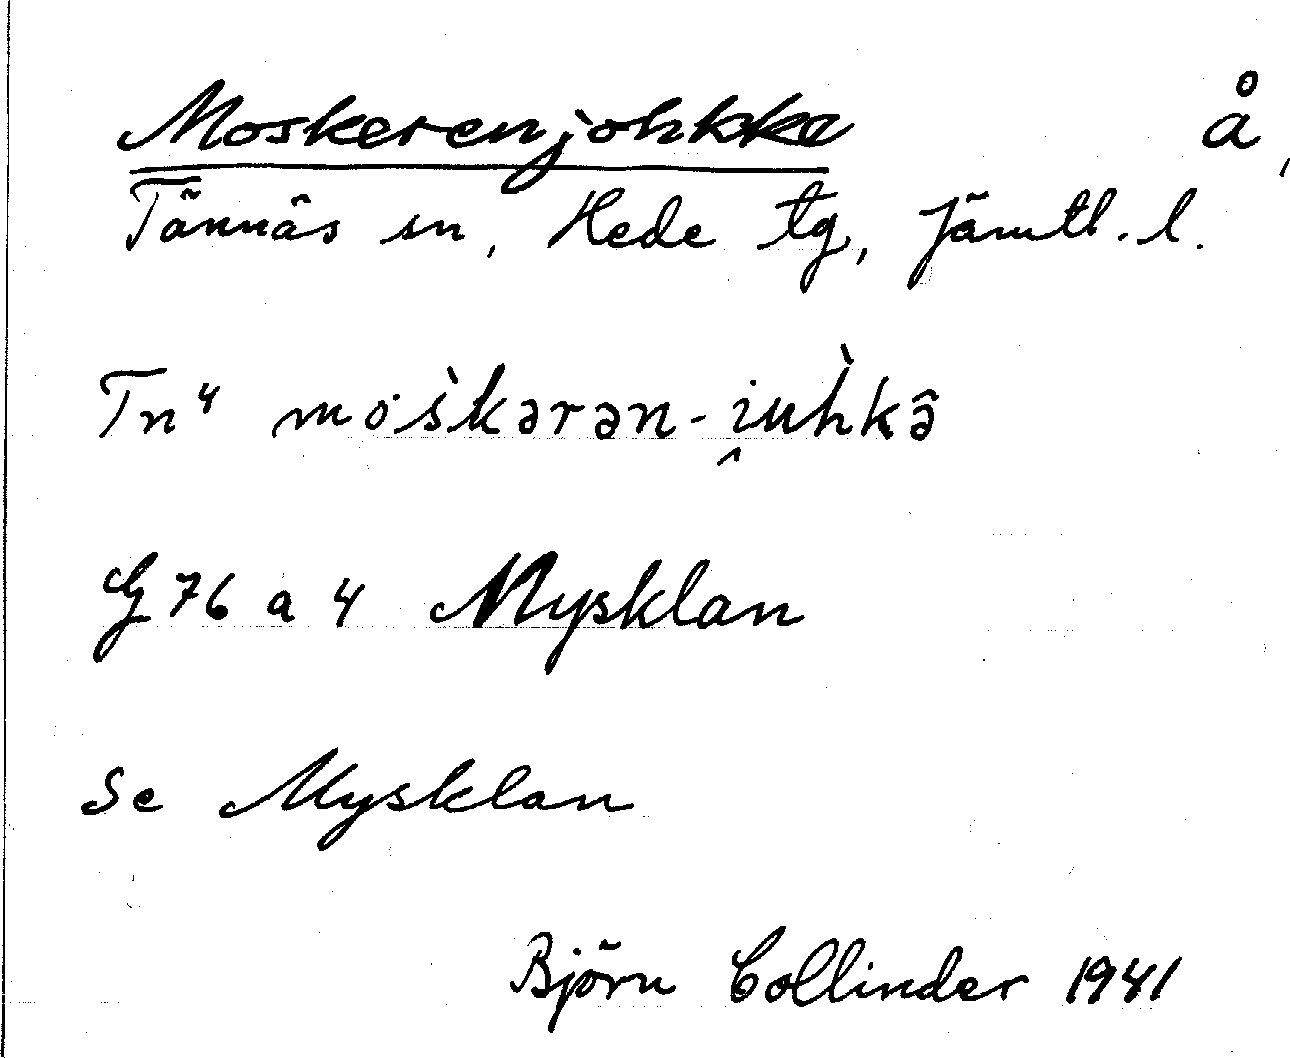 Moskerenjohkke å,
Tännäs sn, Hede tg, Jämtl. l.
Tn⁴ mo·s̀kərən-i̭uh̀kə̑
G 76 a 4 Mysklan
Se Mysklan
Björn Collinder 1941